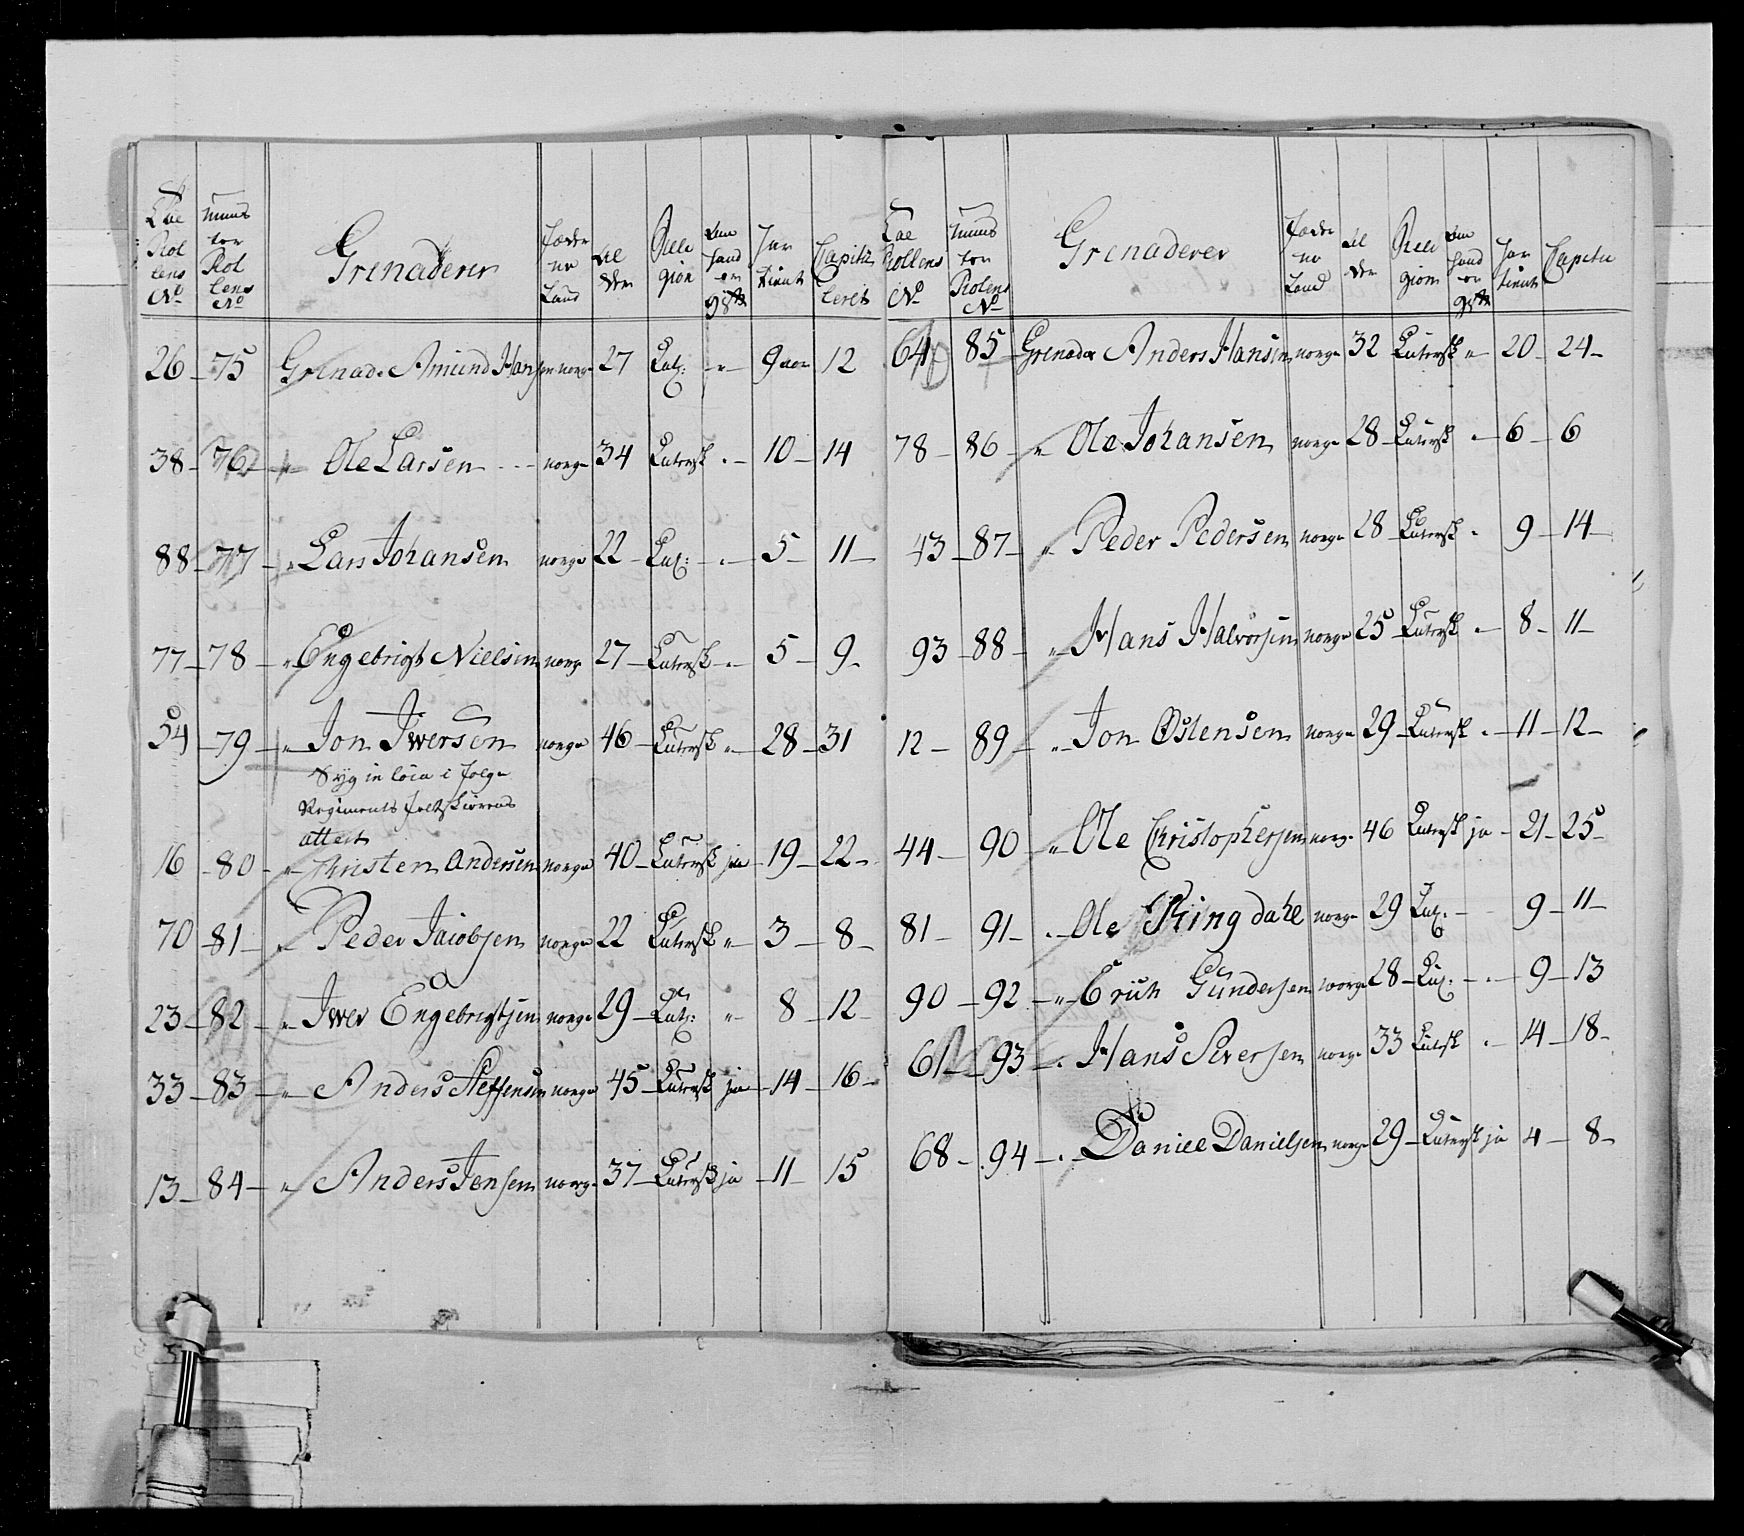 Lac Rollens No | Munstor Rollens No | Grenaderer | Fæderne Land | Alder | Religion | Om hand er gift | Har tient | Capituleret
26 – 75 Grenad: Amund Hansen norge 27 Lut: – 9 aar 12
38 – 76 – " Ole Larsen norge 34 Lutersk – 10 – 14
88 – 77 – " Lars Johansen norge 22 – Lut: – 5 – 11 –
77 – 78 – " Engebrigt Nielsen norge 27 – Lutersk – 5 – 9 –
54 – 79 – " Jon Iwersen norge 46 – Lutersk " – 28 – 31
Syg in loca i følge
Regiments feltskiærens
attest
16 – 80 – " Christen Andersen norge 40 – Lutersk ja – 19 – 22 –
70 – 81 – " Peder Jacobsen norge 22 Lutersk " – 3 – 8 –
23 – 82 – " Iwer Engebrigtsen norge 29 – Lut: " – 8 – 12 –
33 – 83 – " Anders Steffensen norge 45 – Lutersk ja – 14 – 16 –
13 – 84 – " Anders Jensen norge 37 – Lutersk ja – 11 – 15
Lac Rollens No | Munstor Rolens No | Grenaderer | Fæderne Land | Alder | Religion | Om hand er gift | Har tient | Capitu
64 85 – Grenader Anders Hansen norge 32 Lutersk " – 20 – 24 –
78 – 86 – " Ole Johansen norge 28 – Lutersk – 6 – 6
43 – 87 – " Peder Pedersen norge 28 Lutersk – 9 – 14 –
93 – 88 – " Hans Halvorsen norge 25 – Lutersk – 8 – 11 –
12 – 89 – " Jon Østensen norge 29 – Lutersk – 11 – 12 –
44 – 90 – " Ole Christophersen norge 46 Lutersk ja – 21 – 25 –
81 – 91 – Ole Ringdahl norge 29 Lut: – 9 – 11 –
90 – 92 – " Erich Gundersen norge 28 – Lut: – 9 – 13
61 – 93 – Hans Siversen norge 33 Lutersk – 14 – 18 –
68 – 94 – Daniel Danielsen norge 29 – Lutersk ja 4 – 8 –